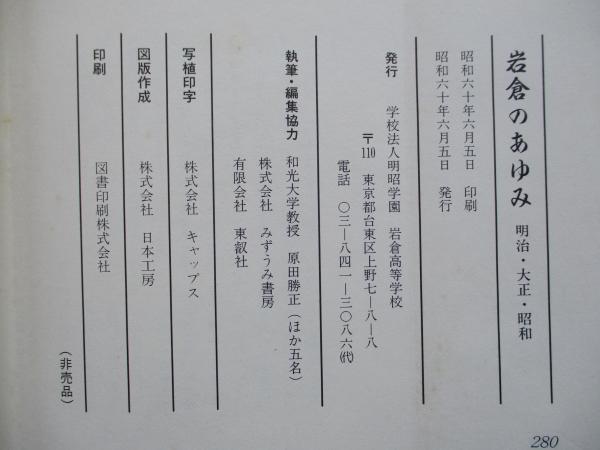 岩倉のあゆみ 明治・大正・昭和
昭和六十年六月五日 印刷
昭和六十年六月五日 発行
発行 学校法人明昭学園 岩倉高等学校
〒110 東京都台東区上野七―八―八
電話 〇三―八四一―三〇八六(代)
執筆・編集協力 和光大学教授 原田勝正(ほか五名)
株式会社 みずうみ書房
有限会社 東叡社
写植印字 株式会社 キャップス
図版作成 株式会社 日本工房
印刷 図書印刷株式会社
(非売品)
280